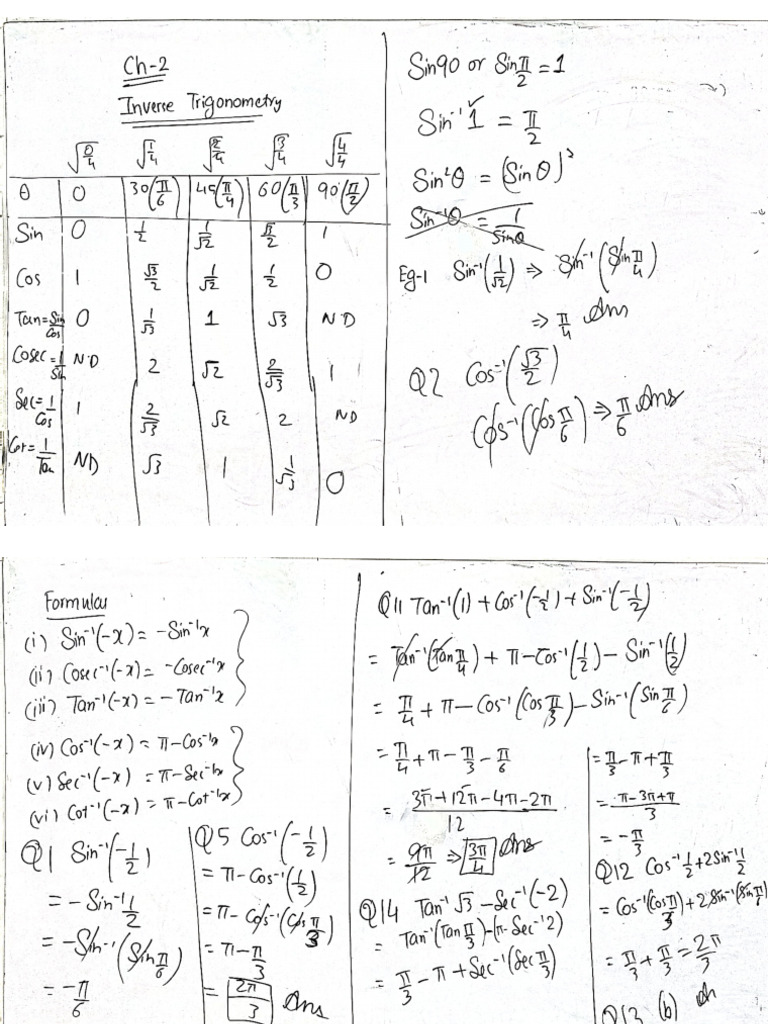 Ch-2
Inverse Trigonometry
√0/4 √1/4 √2/4 √3/4 √4/4
θ 0 30(π/6) 45(π/4) 60(π/3) 90°(π/2)
Sin 0 1/2 1/√2 √3/2 1
Cos 1 √3/2 1/√2 1/2 0
Tan=Sin/Cos 0 1/√3 1 √3 ND
Cosec=1/Sin ND 2 √2 2/√3 1
Sec=1/Cos 1 2/√3 √2 2 ND
Cot=1/Tan ND √3 1 1/√3 0
Sin90 or Sin π/2 = 1
Sin⁻¹ 1 = π/2
Sin²θ = (Sinθ)²
Sin⁻¹θ = 1/Sinθ
Eg-1 Sin⁻¹(1/√2) ⇒ Sin⁻¹(Sin π/4)
⇒ π/4 Ans
Q2 Cos⁻¹(√3/2)
Cos⁻¹(Cos π/6) ⇒ π/6 Ans
Formulas
(i) Sin⁻¹(-x) = -Sin⁻¹x
(ii) Cosec⁻¹(-x) = -Cosec⁻¹x
(iii) Tan⁻¹(-x) = -Tan⁻¹x
(iv) Cos⁻¹(-x) = π-Cos⁻¹x
(v) Sec⁻¹(-x) = π-Sec⁻¹x
(vi) Cot⁻¹(-x) = π-Cot⁻¹x
Q1 Sin⁻¹(-1/2)
= -Sin⁻¹ 1/2
= -Sin⁻¹(Sin π/6)
= -π/6
Q5 Cos⁻¹(-1/2)
= π-Cos⁻¹(1/2)
= π-Cos⁻¹(Cos π/3)
= π-π/3
= 2π/3 Ans
Q11 Tan⁻¹(1) + Cos⁻¹(-1/2) + Sin⁻¹(-1/2)
= Tan⁻¹(Tan π/4) + π-Cos⁻¹(1/2) - Sin⁻¹(1/2)
= π/4 + π - Cos⁻¹(Cos π/3) - Sin⁻¹(Sin π/6)
= π/4 + π - π/3 - π/6
= 3π+12π-4π-2π/12
= 9π/12 ⇒ 3π/4 Ans
Q14 Tan⁻¹√3 - Sec⁻¹(-2)
= Tan⁻¹(Tan π/3) - (π-Sec⁻¹2)
= π/3 - π + Sec⁻¹(Sec π/3)
= π/3 - π + π/3
= π-3π+π/3
= -π/3
Q12 Cos⁻¹ 1/2 + 2Sin⁻¹ 1/2
= Cos⁻¹(Cos π/3) + 2Sin⁻¹(Sin π/6)
= π/3 + π/3 = 2π/3
Q13 (b)